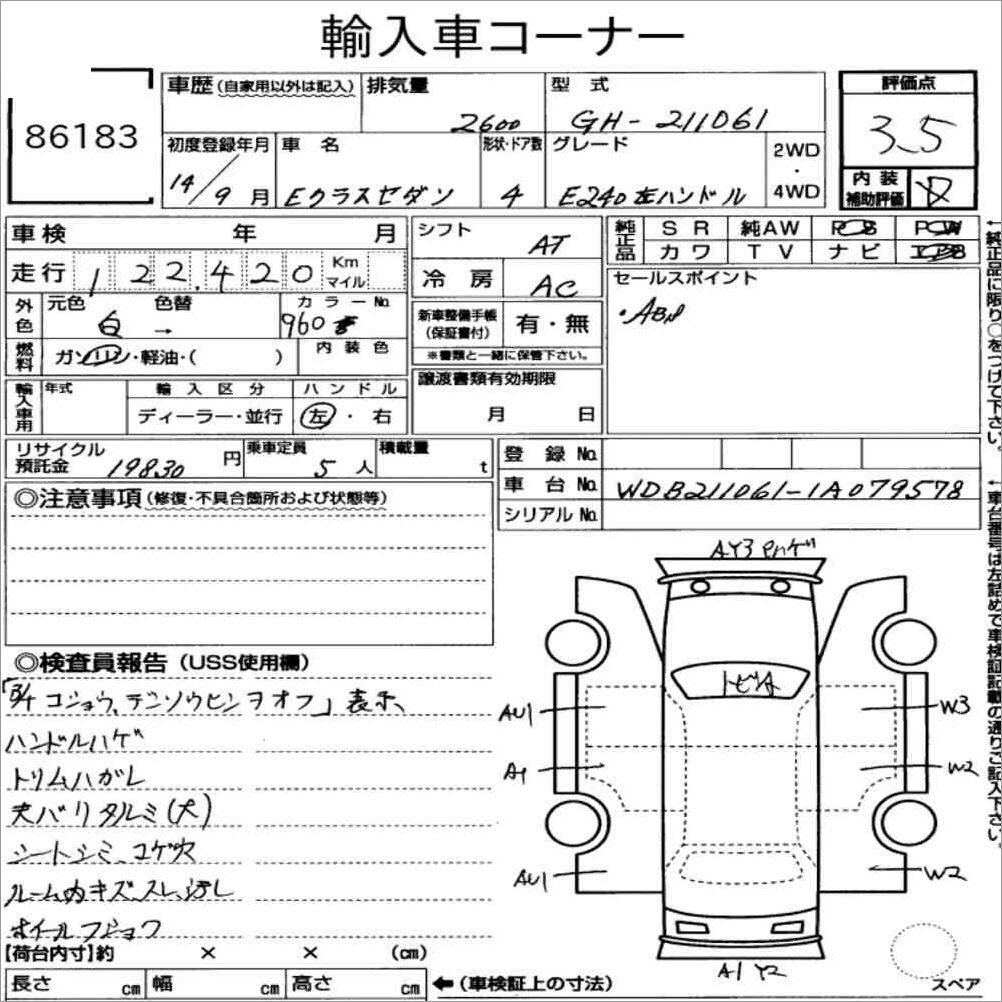 輸入車コーナー
86183
車歴(自家用以外は記入) 排気量 2600 型式 GH-211061
初度登録年月 14/9月 車名 Eクラスセダン 形状・ドア数 4 グレード E240 左ハンドル 2WD・4WD
評価点 3.5
内装補助評価 D
車検 年 月
走行 122,420 Km マイル
外色 元色 白 色替 → カラーNo. 960
燃料 ガソリン・軽油・( ) 内装色
輸入車用 年式 輸入区分 ディーラー・並行 ハンドル 左・右
シフト AT
冷房 AC
新車整備手帳(保証書付) 有・無
※書類と一緒に保管下さい。
譲渡書類有効期限 月 日
純正品 SR 純AW PS PW
カワ TV ナビ エアB
セールスポイント
・ABS
←純正品に限り○をつけて下さい。
リサイクル預託金 19830円 乗車定員 5人 積載量 t
登録No.
車台No. WDB211061-1A079578
シリアルNo.
←車台番号は左詰めで車検証記載の通りご記入下さい。
◎注意事項(修復・不具合箇所および状態等)
◎検査員報告(USS使用欄)
「B/4 コショウ、デンソウヒンヲオフ」表示、
ハンドルハゲ
トリムハガレ
天バリタルミ(大)
シートシミ、コゲ穴
ルーム内キズ、スレ、汚レ
ホイールフショク
AY3
トビA
AU1
W3
A1
W2
AU1
W2
A1 Y2
スペア
【荷台内寸】約 × × (cm)
長さ cm 幅 cm 高さ cm ←(車検証上の寸法)